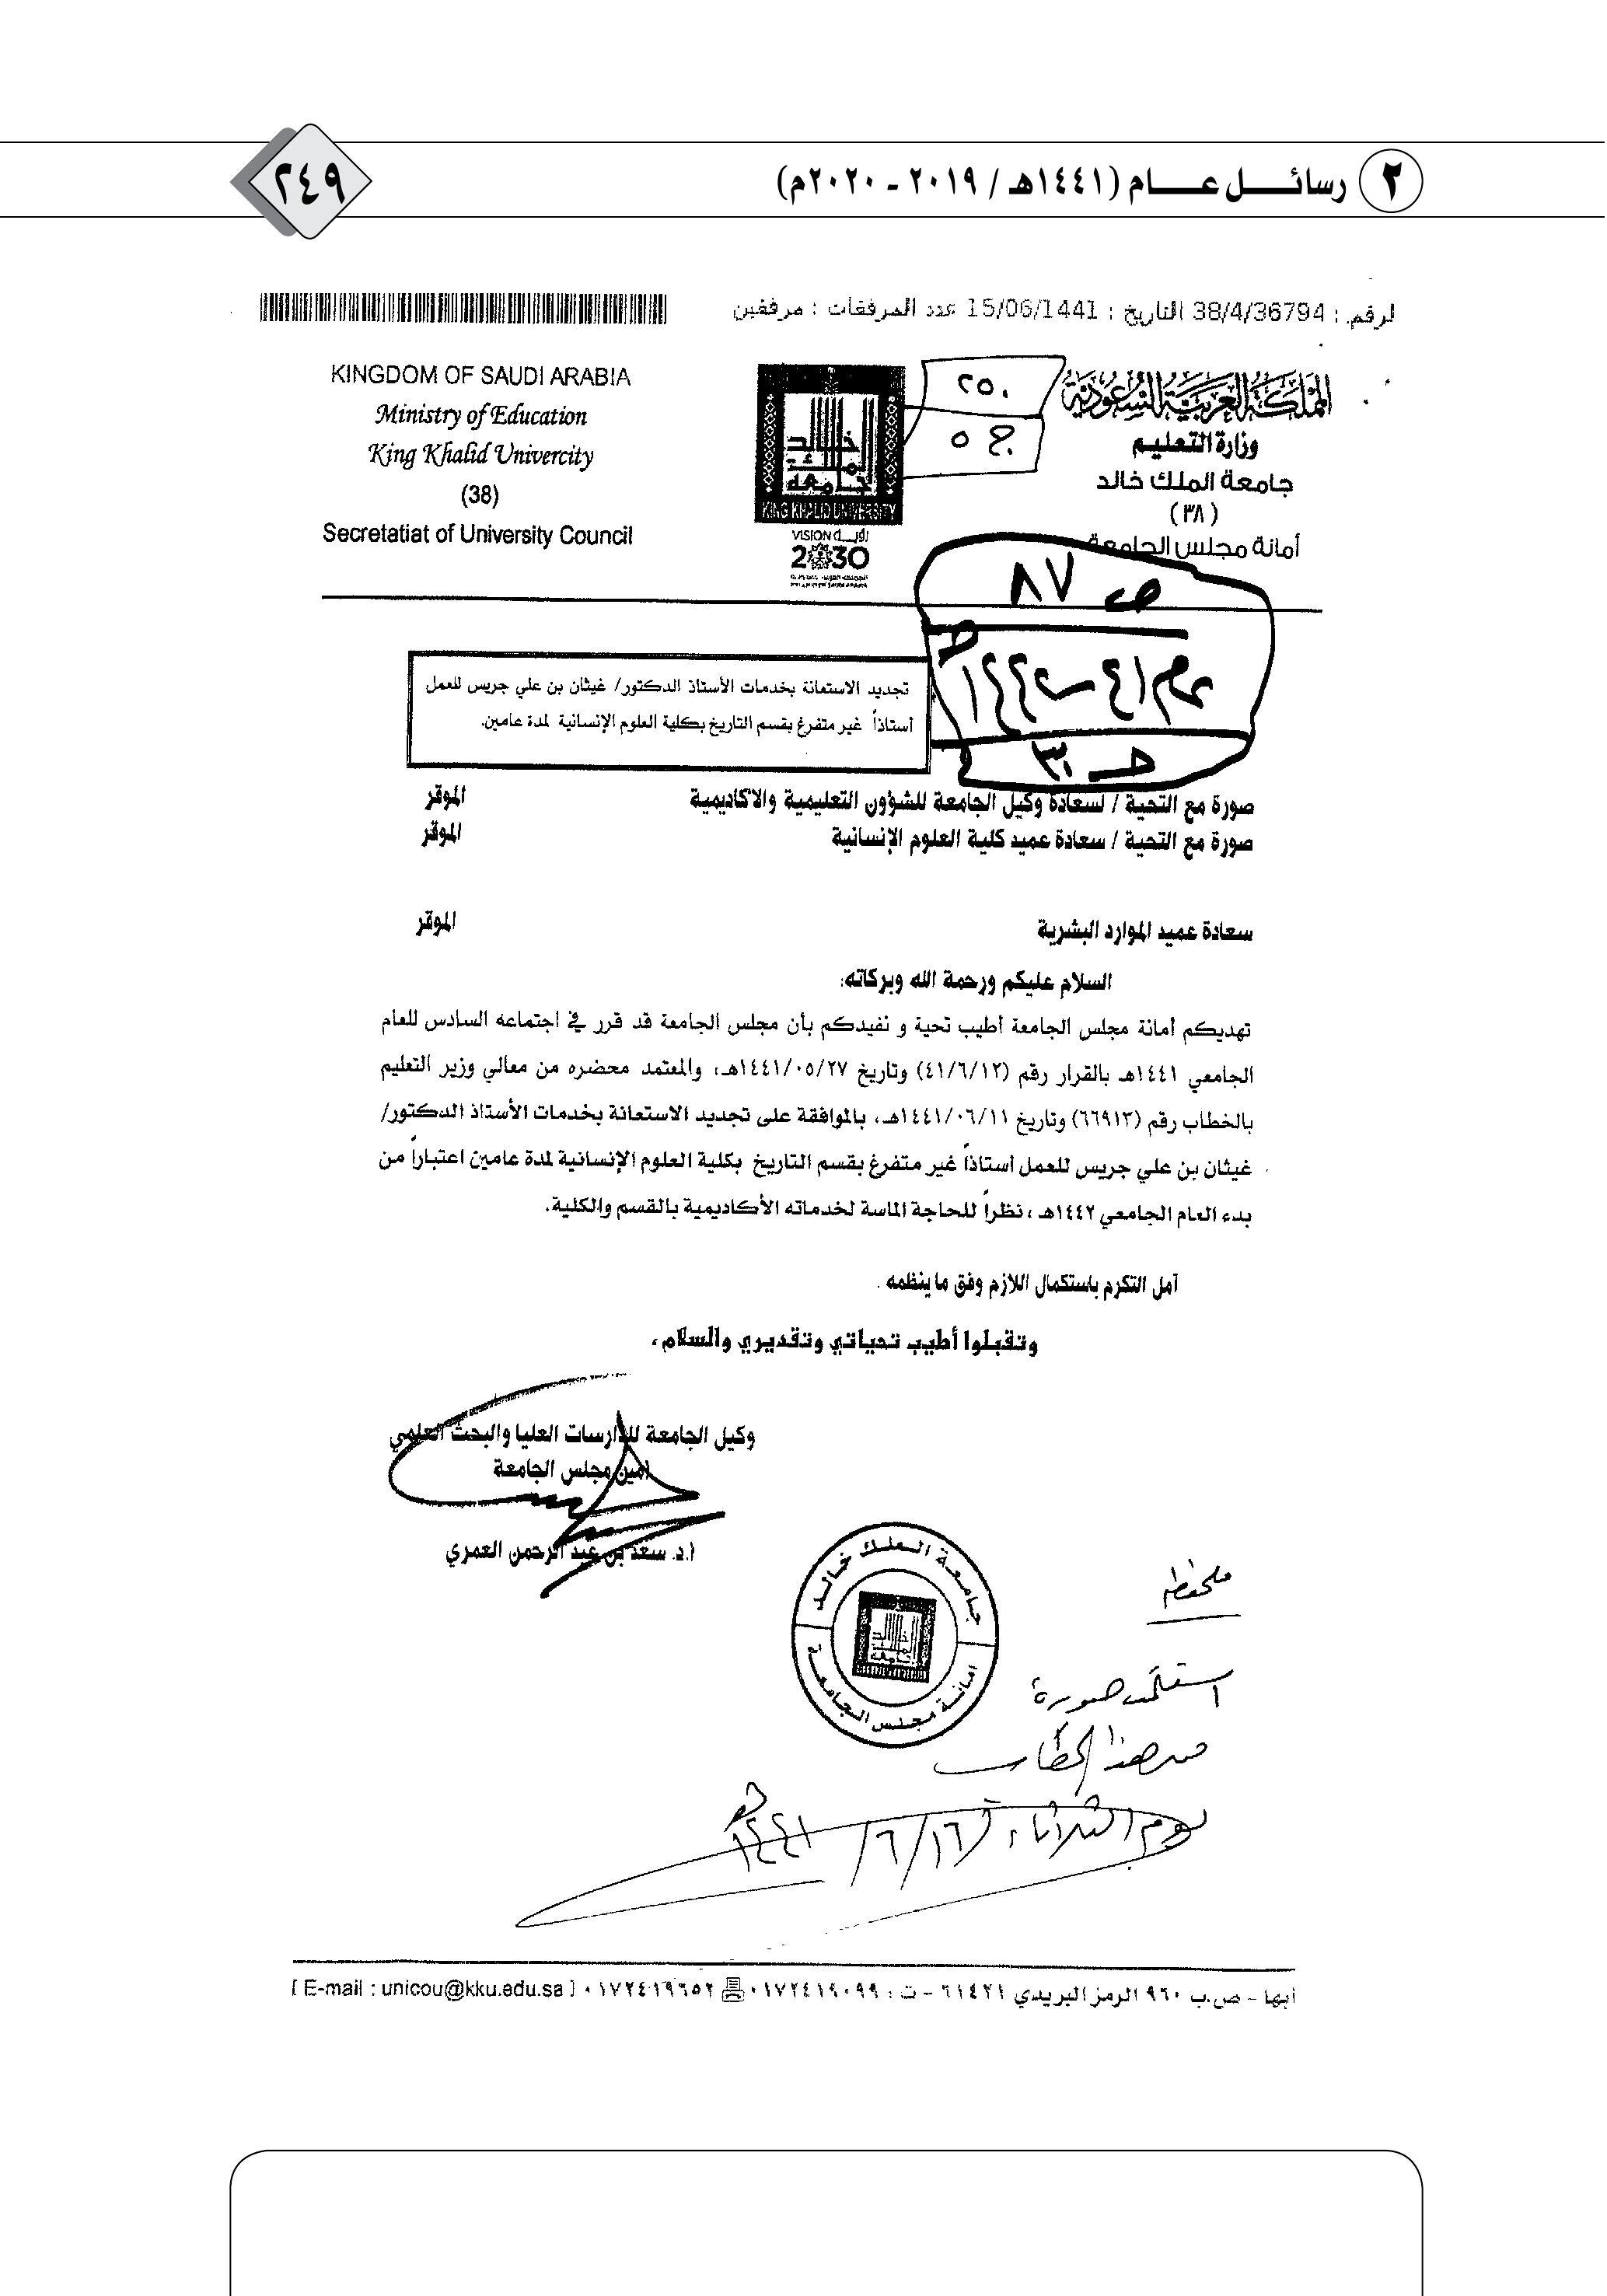 ٢ رسائل عام (١٤٤١هـ / ٢٠١٩ - ٢٠٢٠م)
٢٤٩
لرقم : 38/4/36794 التاريخ : 15/06/1441 عدد المرفقات : مرفقين
المملكة العربية السعودية
وزارة التعليم
جامعة الملك خالد
(٣٨)
أمانة مجلس الجامعة
٢٥٠
ج ٥
خالد
الملك
جامعة
KING KHALID UNIVERSITY
VISION رؤيــة
2030
المملكة العربية السعودية
KINGDOM OF SAUDI ARABIA
KINGDOM OF SAUDI ARABIA
Ministry of Education
King Khalid Univercity
(38)
Secretatiat of University Council
ص ٨٧
عام ٤١ - ١٤٤٢هـ
تجديد الاستعانة بخدمات الأستاذ الدكتور/ غيثان بن علي جريس للعمل
أستاذاً غير متفرغ بقسم التاريخ بكلية العلوم الإنسانية لمدة عامين.
صورة مع التحية / لسعادة وكيل الجامعة للشؤون التعليمية والاكاديمية الموقر
صورة مع التحية / سعادة عميد كلية العلوم الإنسانية الموقر
سعادة عميد الموارد البشرية الموقر
السلام عليكم ورحمة الله وبركاته:
تهديكم أمانة مجلس الجامعة أطيب تحية و نفيدكم بأن مجلس الجامعة قد قرر في اجتماعه السادس للعام
الجامعي ١٤٤١هـ بالقرار رقم (٤١/٦/١٢) وتاريخ ١٤٤١/٠٥/٢٧هـ، والمعتمد محضره من معالي وزير التعليم
بالخطاب رقم (٦٦٩١٣) وتاريخ ١٤٤١/٠٦/١١هـ، بالموافقة على تجديد الاستعانة بخدمات الأستاذ الدكتور/
غيثان بن علي جريس للعمل أستاذاً غير متفرغ بقسم التاريخ بكلية العلوم الإنسانية لمدة عامين اعتباراً من
بدء العام الجامعي ١٤٤٢هـ ، نظراً للحاجة الماسة لخدماته الأكاديمية بالقسم والكلية.
آمل التكرم باستكمال اللازم وفق ما ينظمه .
وتقبلوا أطيب تحياتي وتقديري والسلام ،
وكيل الجامعة للدارسات العليا والبحث العلمي
امين مجلس الجامعة
ا.د. سعد بن عبد الرحمن العمري
جامعة الملك خالد
أمانة مجلس الجامعة
ملحوظه
استلمت صورة
من هذا الخطاب
يوم الثلاثاء ١٦/٦/١٤٤١هـ
أبها - ص.ب ٩٦٠ الرمز البريدي ٦١٤٢١ - ت : ٠١٧٢٤١٩٠٩٩ ٠١٧٢٤١٩٦٥٢ [ E-mail : unicou@kku.edu.sa ]